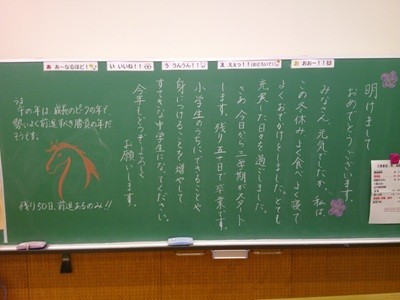 あ あ〜なるほど！
い いいね！！
う うんうん！！
え ええっ！！(おどろいて)
お おお〜！！
明けまして
おめでとうございます
みなさん、元気でしたか。私は、
この冬休み、よく食べ、よく寝て
よくおでかけをしました。とても
充実した日々を過ごしました。
さあ、今日から三学期がスタート
します。残り五十日で卒業です。
小学生のうちにできることや
身につけることを増やして
すてきな中学生になってください。
今年もどうぞよろしく
お願いします。
うま
午の年は 成長のピークの年で
勢いよく前進すべき勝負の年だ
そうです。
残り50日、前進あるのみ!!